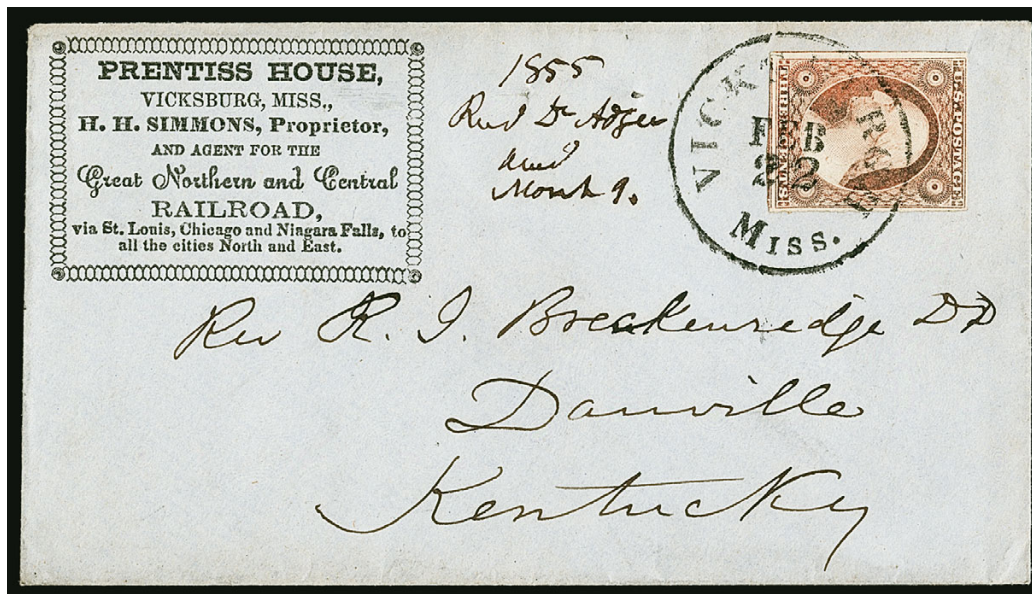 PRENTISS HOUSE,
VICKSBURG, MISS.,
H. H. SIMMONS, Proprietor,
AND AGENT FOR THE
Great Northern and Central
RAILROAD,
via St. Louis, Chicago and Niagara Falls, to
all the cities North and East.
1855
Rev Dr Adger
March 9.
VICKSBURG
FEB
22
MISS.
U.S. POSTAGE
THREE CENTS
Rev R. J. Breckenredge DD
Danville
Kentucky